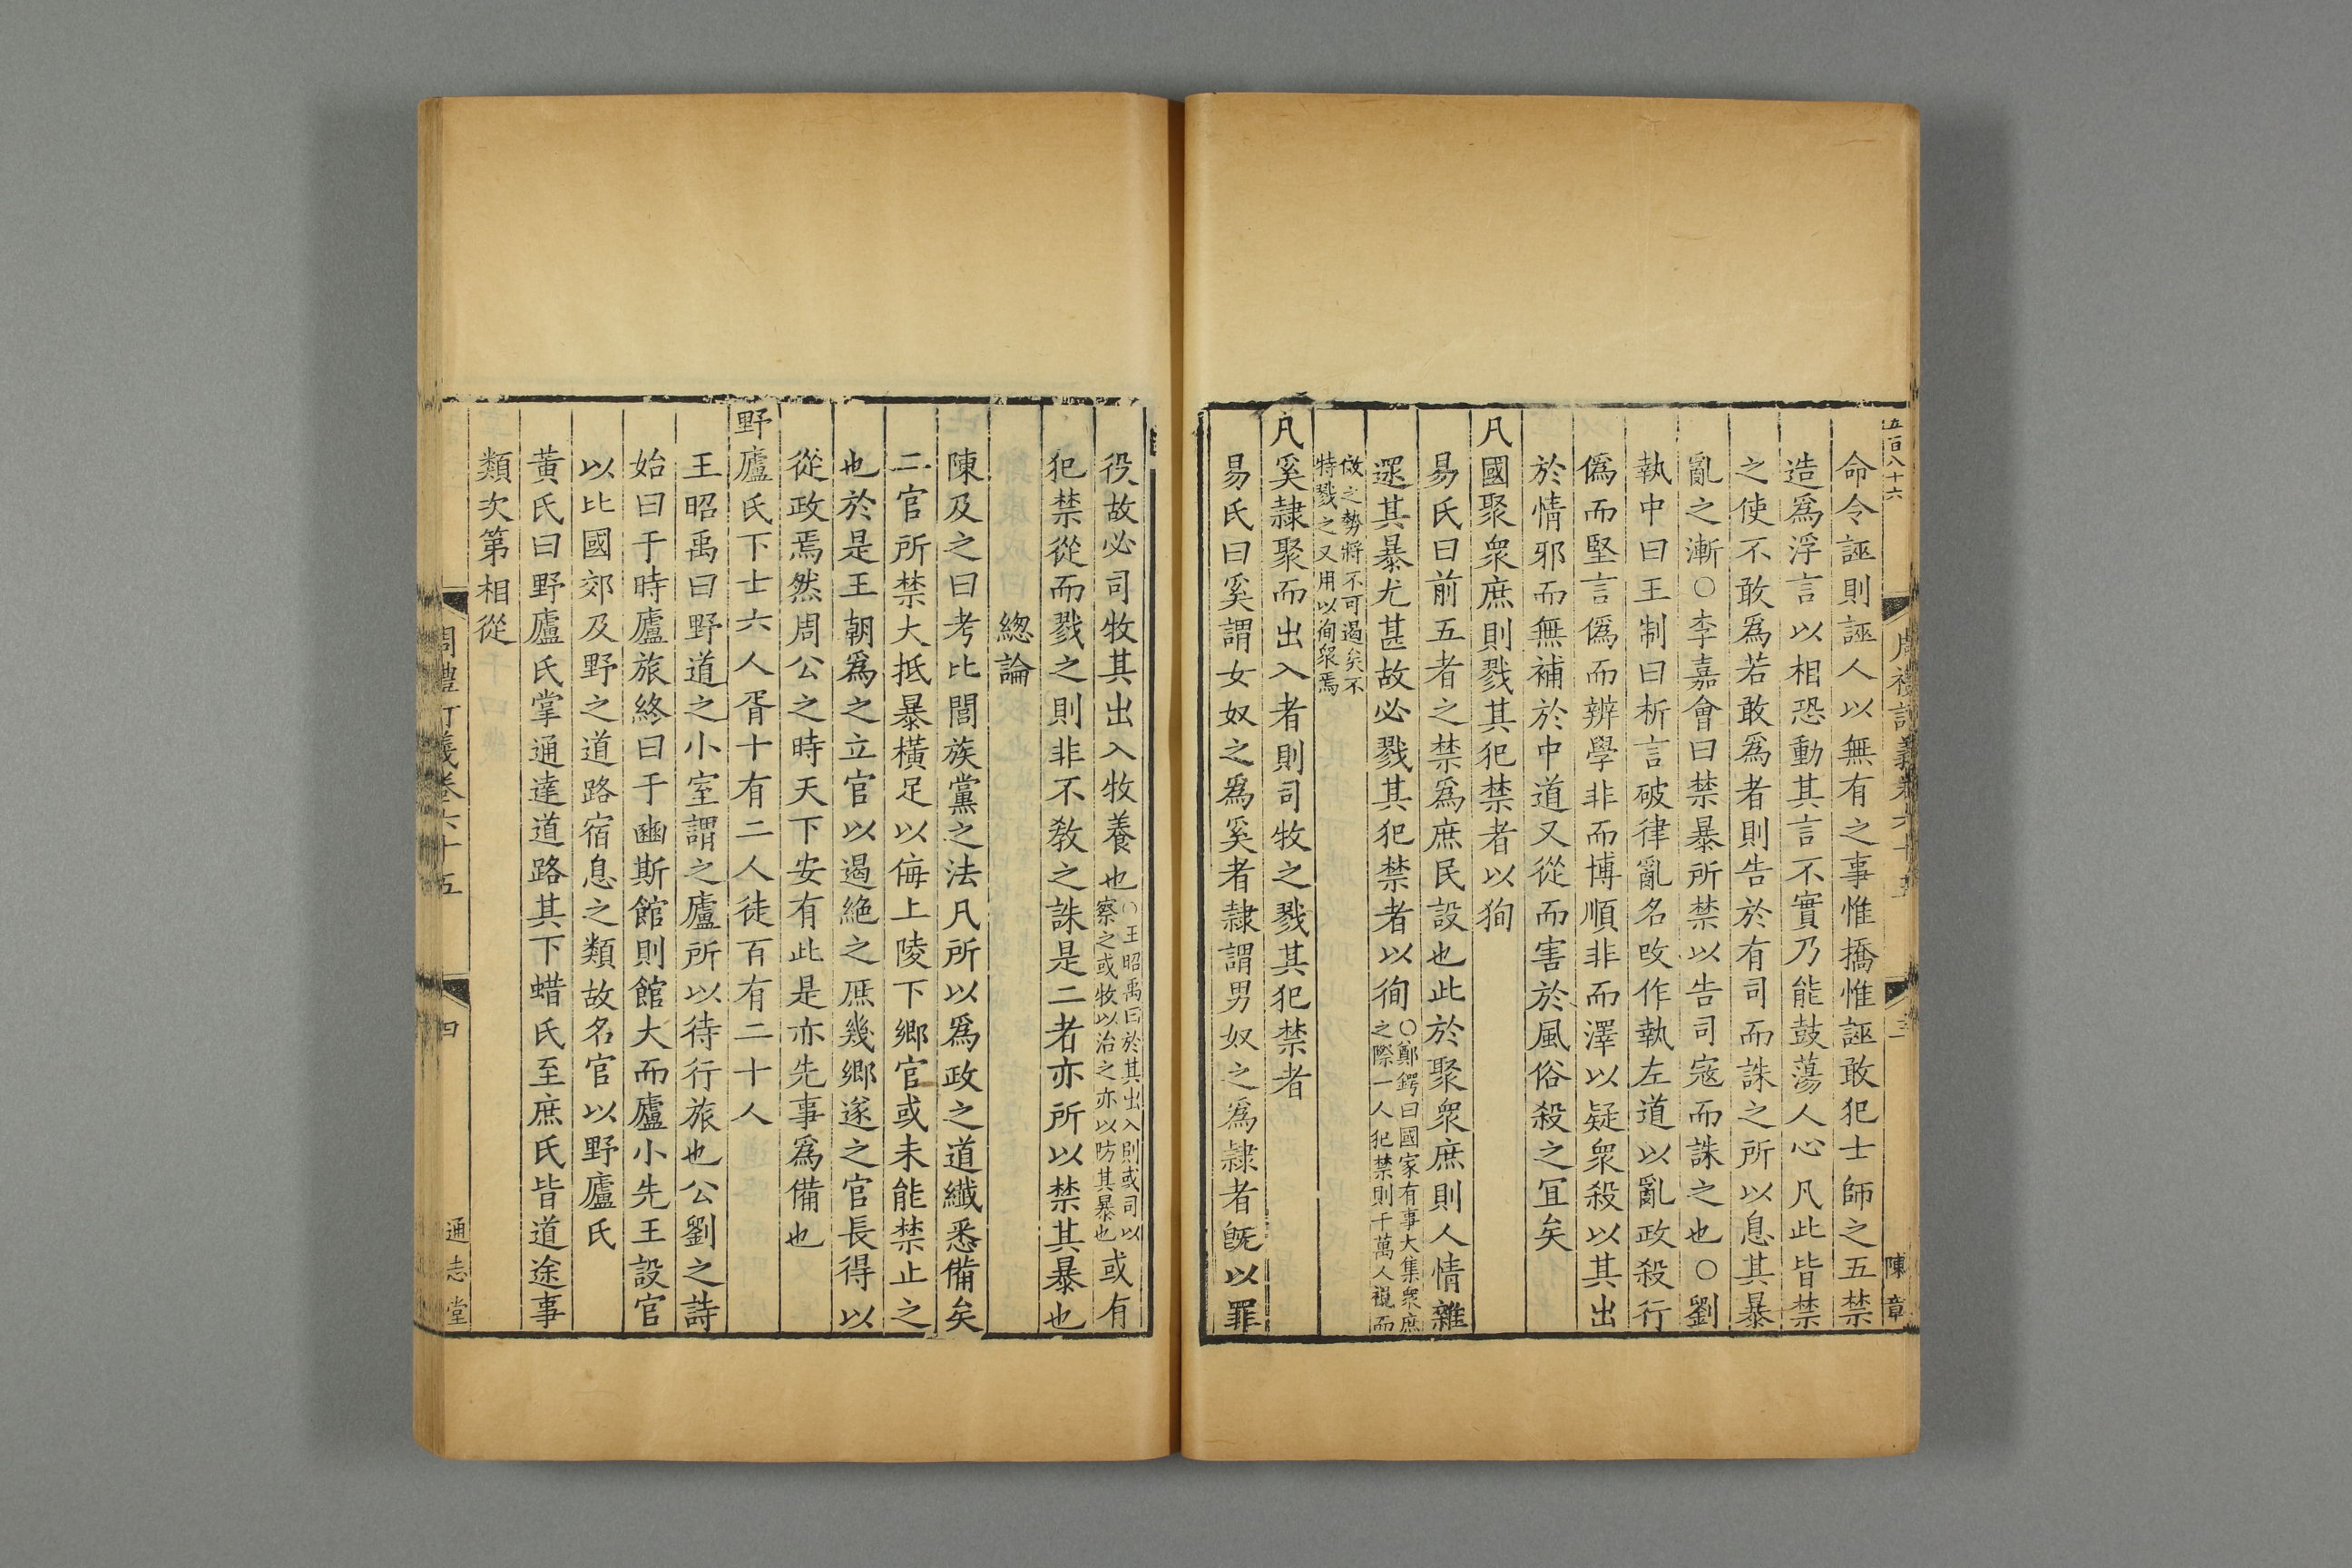 五百八十六
周禮訂義卷六十五
三
陳章
命令誣則誣人以無有之事惟撟惟誣敢犯士師之五禁
造爲浮言以相恐動其言不實乃能鼓蕩人心凡此皆禁
之使不敢爲若敢爲者則告於有司而誅之所以息其暴
亂之漸○李嘉會曰禁暴所禁以告司宼而誅之也○劉
執中曰王制曰析言破律亂名攺作執左道以亂政殺行
僞而堅言僞而辨學非而博順非而澤以疑衆殺以其出
於情邪而無補於中道又從而害於風俗殺之冝矣
凡國聚衆庶則戮其犯禁者以狥
易氏曰前五者之禁爲庶民設也此於聚衆庶則人情雜
遝其暴尤甚故必戮其犯禁者以徇
○鄭鍔曰國家有事大集衆庶
之際一人犯禁則千萬人視而
傚之勢將不可遏矣不
特戮之又用以徇衆焉
凡奚隷聚而出入者則司牧之戮其犯禁者
易氏曰奚謂女奴之爲奚者隷謂男奴之爲隷者旣以罪
役故必司牧其出入牧養也
○王昭禹曰於其出入則或司以
察之或牧以治之亦以防其暴也
或有
犯禁從而戮之則非不敎之誅是二者亦所以禁其暴也
緫論
陳及之曰考比閭族黨之法凡所以爲政之道纎悉備矣
二官所禁大抵暴橫足以侮上陵下鄉官或未能禁止之
也於是王朝爲之立官以遏絶之庶幾鄉遂之官長得以
從政焉然周公之時天下安有此是亦先事爲備也
野廬氏下士六人胥十有二人徒百有二十人
王昭禹曰野道之小室謂之廬所以待行旅也公劉之詩
始曰于時廬旅終曰于豳斯館則館大而廬小先王設官
以比國郊及野之道路宿息之類故名官以野廬氏
黃氏曰野廬氏掌通達道路其下蜡氏至庶氏皆道途事
類次第相從
周禮訂義卷六十五
四
通志堂